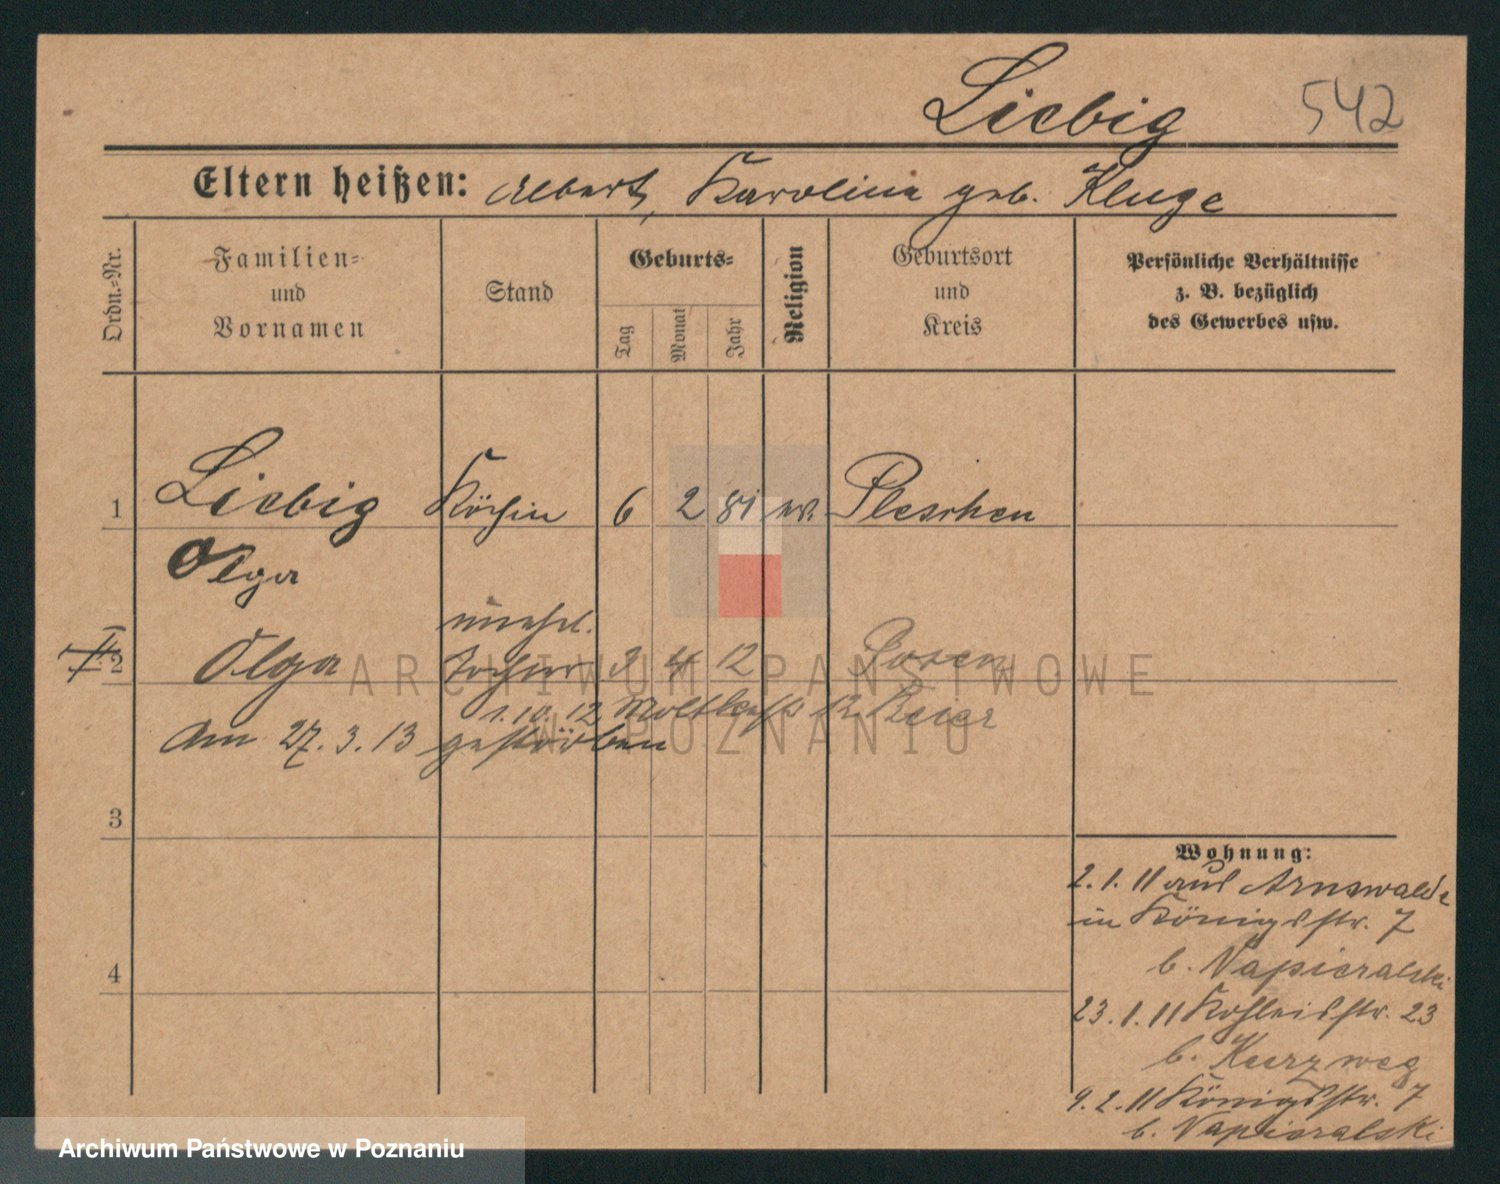 Liebig 542
Eltern heißen: Albert, Karolina geb. Kluge
Ordn.=Nr.
Familien=
und
Vornamen
Stand
Geburts=
Tag
Monat
Jahr
Religion
Geburtsort
und
Kreis
Persönliche Verhältnisse
z. B. bezüglich
des Gewerbes usw.
1 Liebig Köchin 6 2 81 ev. Pleschen
Olga
unehel.
2 Olga Tochter 3 4 12 Posen
1.10.12 Moltkestr 12 Beier
Am 27.3.13 gestorben
3
4
Wohnung:
2.1.11 aus Arnswalde
in Königsstr. 7
b. Napieralski
23.1.11 Kohleisstr. 23
b. Kurzweg
9.2.11 Königsstr. 7
b. Napieralski
ARCHIWUM PAŃSTWOWE
W POZNANIU
Archiwum Państwowe w Poznaniu